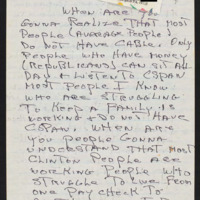 WHEN ARE
GONNA REALIZE THAT MOST
PEOPLE (AVERAGE PEOPLE)
DO NOT HAVE CABLE? ONLY
PEOPLE WHO HAVE MONEY
(REPUBLICANS) CAN SIT ALL
DAY & LISTEN TO CSPAN
MOST PEOPLE I KNOW
WHO ARE STRUGGLING
TO KEEP A FAMILY IS
WORKING & DO NOT HAVE
CSPAN. WHEN ARE
YOU PEOPLE GONNA
UNDERSTAND THAT MOST
CLINTON PEOPLE ARE
WORKING PEOPLE WHO
STRUGGLE TO LIVE FROM
ONE PAY CHECK TO